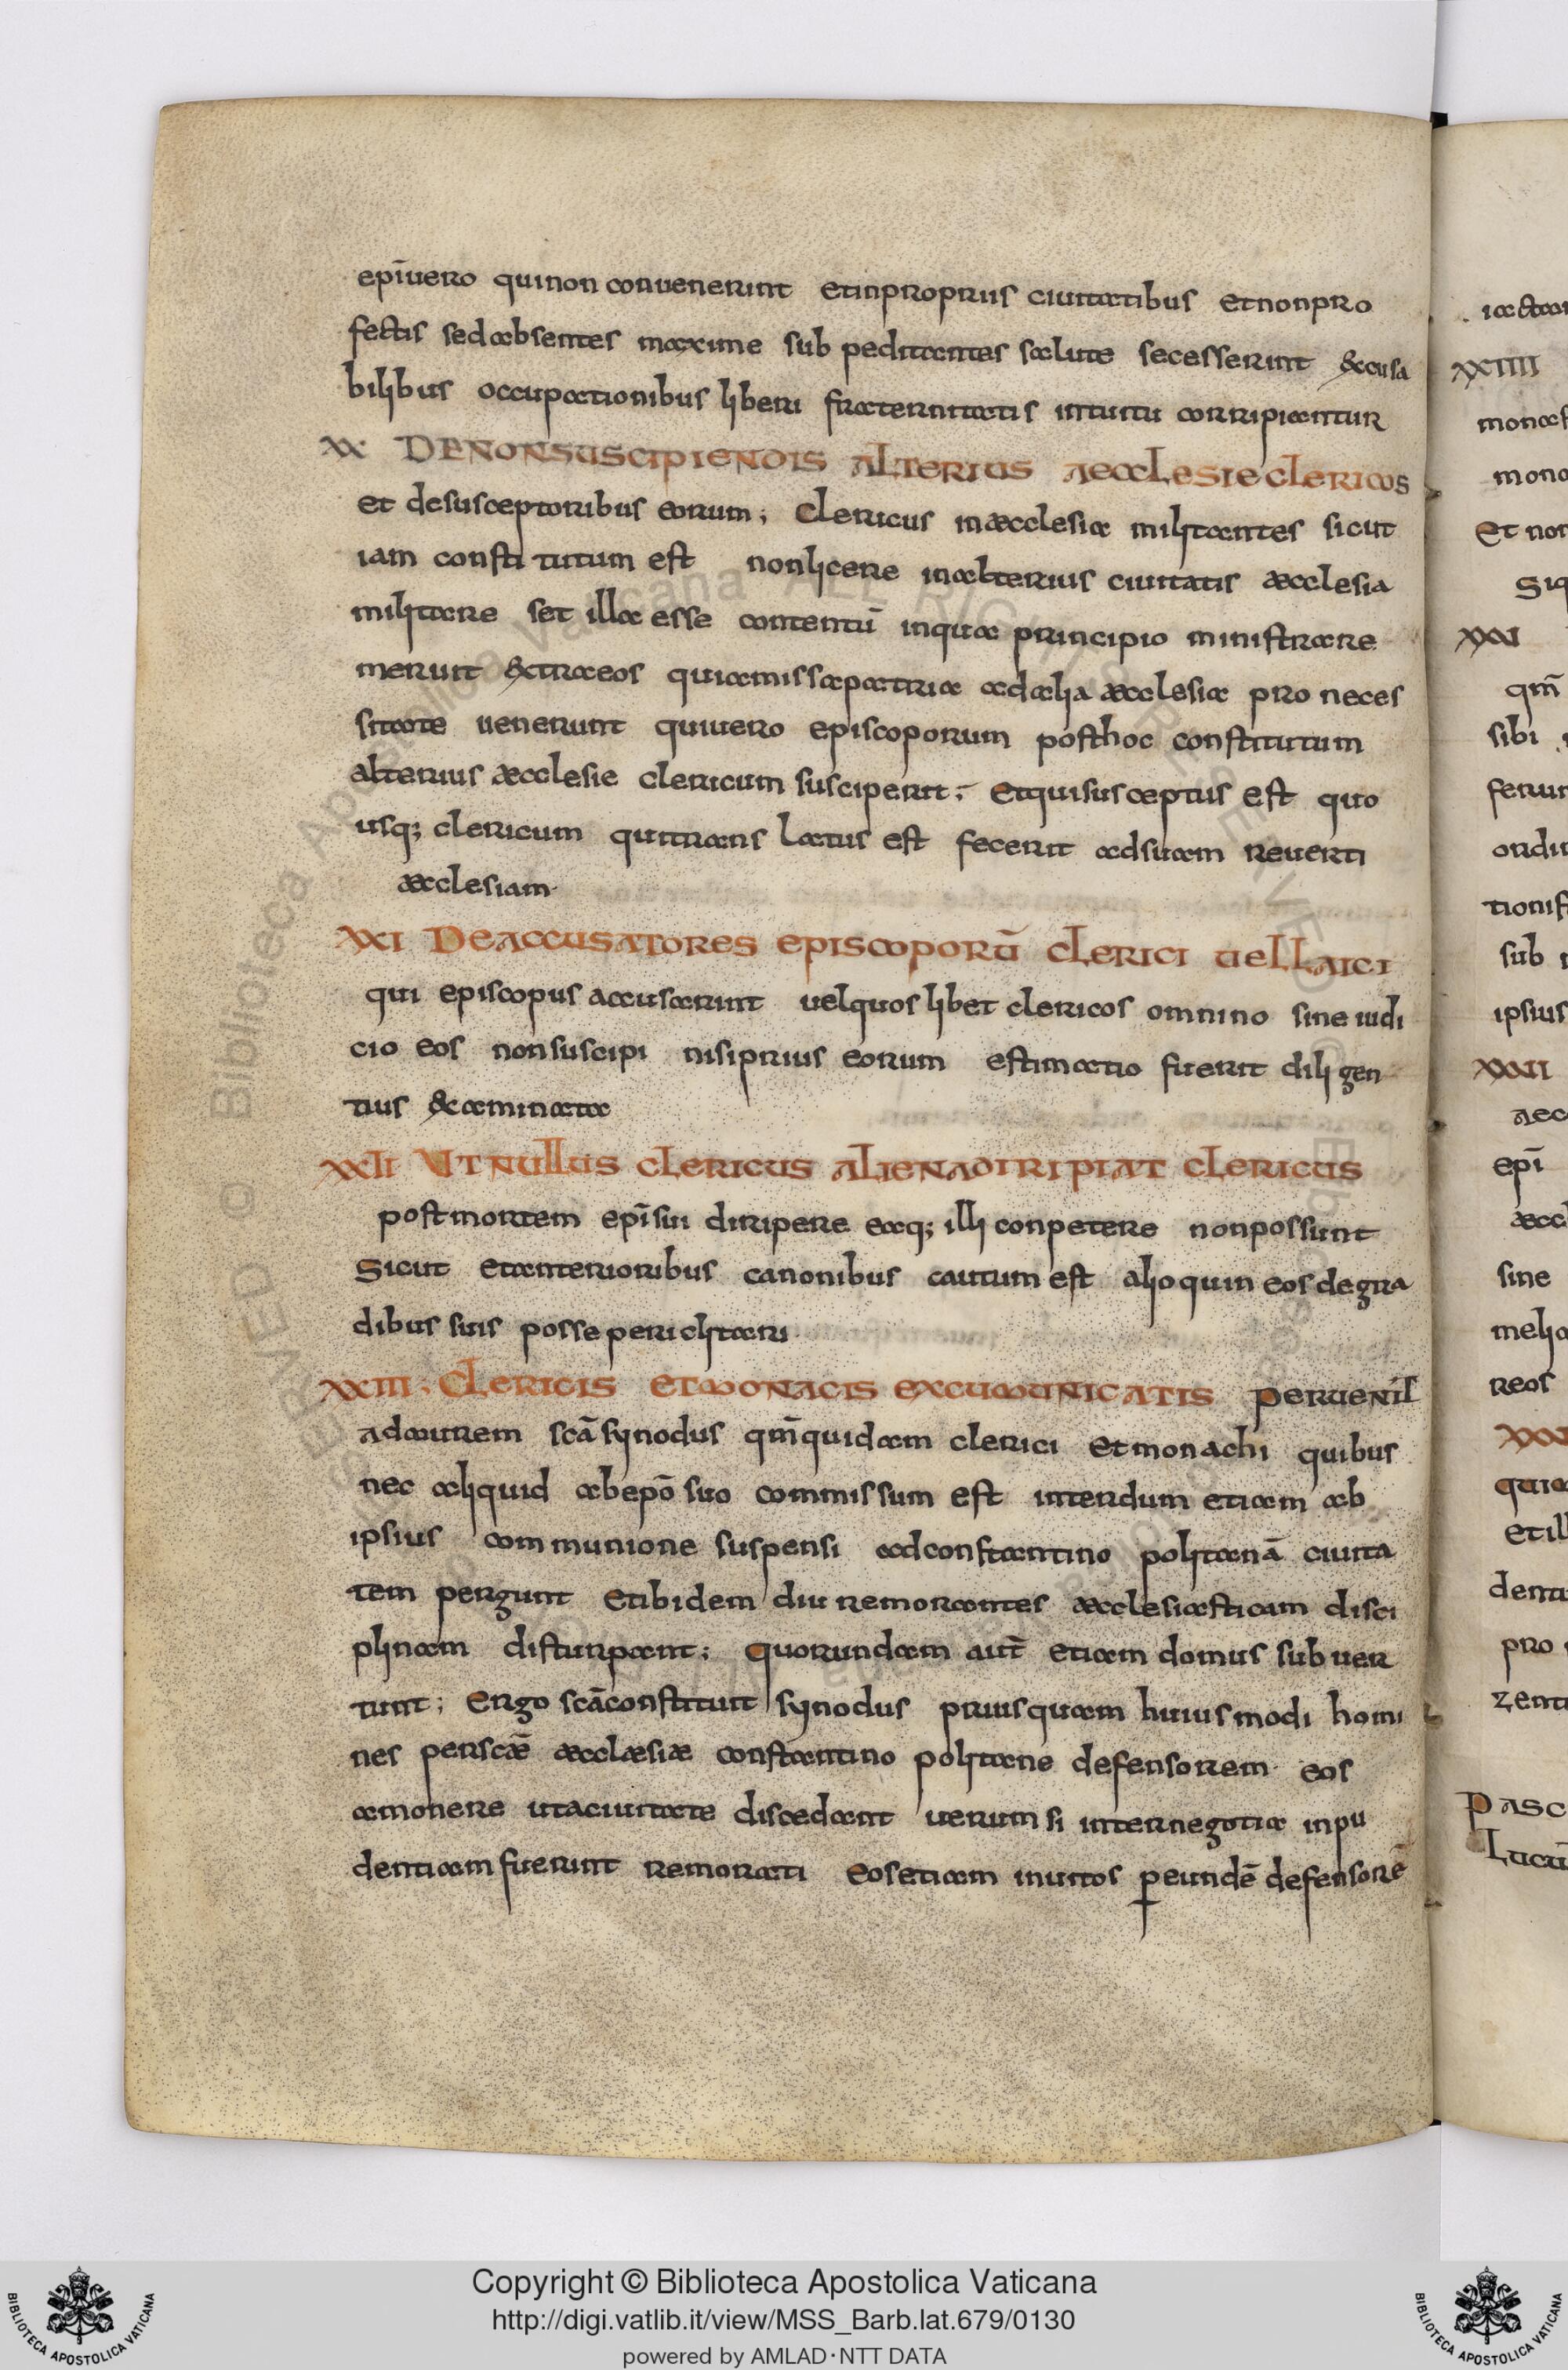 ep̄i uero qui non conuenerint et in propriis ciuitatibus et non pro
fectis sed absentes maxime sub peditantes salute secesserint &cusa
bilibus occupationibus liberi fraternitatis intuitu corripiantur
XX DE NON SUSCIPIENDIS ALTERIUS AECCLESIE CLERICOS
et de susceptoribus eorum; Clericus in æcclesia militantes sicut
iam constitutum est non licere in alterius ciuitatis æcclesia
militare set illa esse contentū in qua principio ministrare
meruit &tra eos qui amissa patria ad alia æcclesia pro neces
sitate uenerunt qui uero episcoporum post hoc constitutum
alterius æcclesie clericum susciperit; Et qui susceptus est quo
usq; clericum qui trans latus est fecerit ad suam reuerti
æcclesiam
XXI DE ACCUSATORES EPISCOPORŪ CLERICI UEL LAICI
qui episcopus accusarint uel quos libet clericos omnino sine iudi
cio eos non suscipi nisi prius eorum estimatio fuerit diligen
tius &aminata
XXII UT NULLUS CLERICUS ALIENA DIRIPIAT CLERICUS
post mortem ep̄i sui diripere eaq; illi conpetere non possunt
Sicut et anterioribus canonibus cautum est alioquin eos de gra
dibus suis posse periclitari
XXIII. CLERICIS ET MONACIS EXCUMUNICATIS peruenit
ad aurem sc̄ā synodus qm̄ quidam clerici et monachi quibus
nec aliquid ab ep̄o suo commissum est interdum etiam ab
ipsius communione suspensi ad constantino politanā ciuita
tem pergunt et ibidem diu remorantes æcclesiasticam disci
plinam disturpant; quorundam aut̄ etiam domus subuer
tunt; Ergo sc̄ā constituit synodus priusquam huiusmodi homi
nes per scǣ æcclæsiæ constantino politane defensorem eos
amonere ut a ciuitate discedant uerum si inter negotia inpu
dentiam fuerint remorati eos etiam inuitos p eundē defensorē
. iactan
XXIIII
monas
mono
Et non
siq
XXV
qm̄
sibi
ferun
ordin
tionis
sub
ipsius
XXVI
aec
ep̄i
æccl
sine
melio
reos
quia
et ill
denta
pro
zenti
Pasc
Lucū
© Biblioteca Apostolica Vaticana
Copyright © Biblioteca Apostolica Vaticana
http://digi.vatlib.it/view/MSS_Barb.lat.679/0130
powered by AMLAD·NTT DATA
BIBLIOTECA APOSTOLICA VATICANA
BIBLIOTECA APOSTOLICA VATICANA